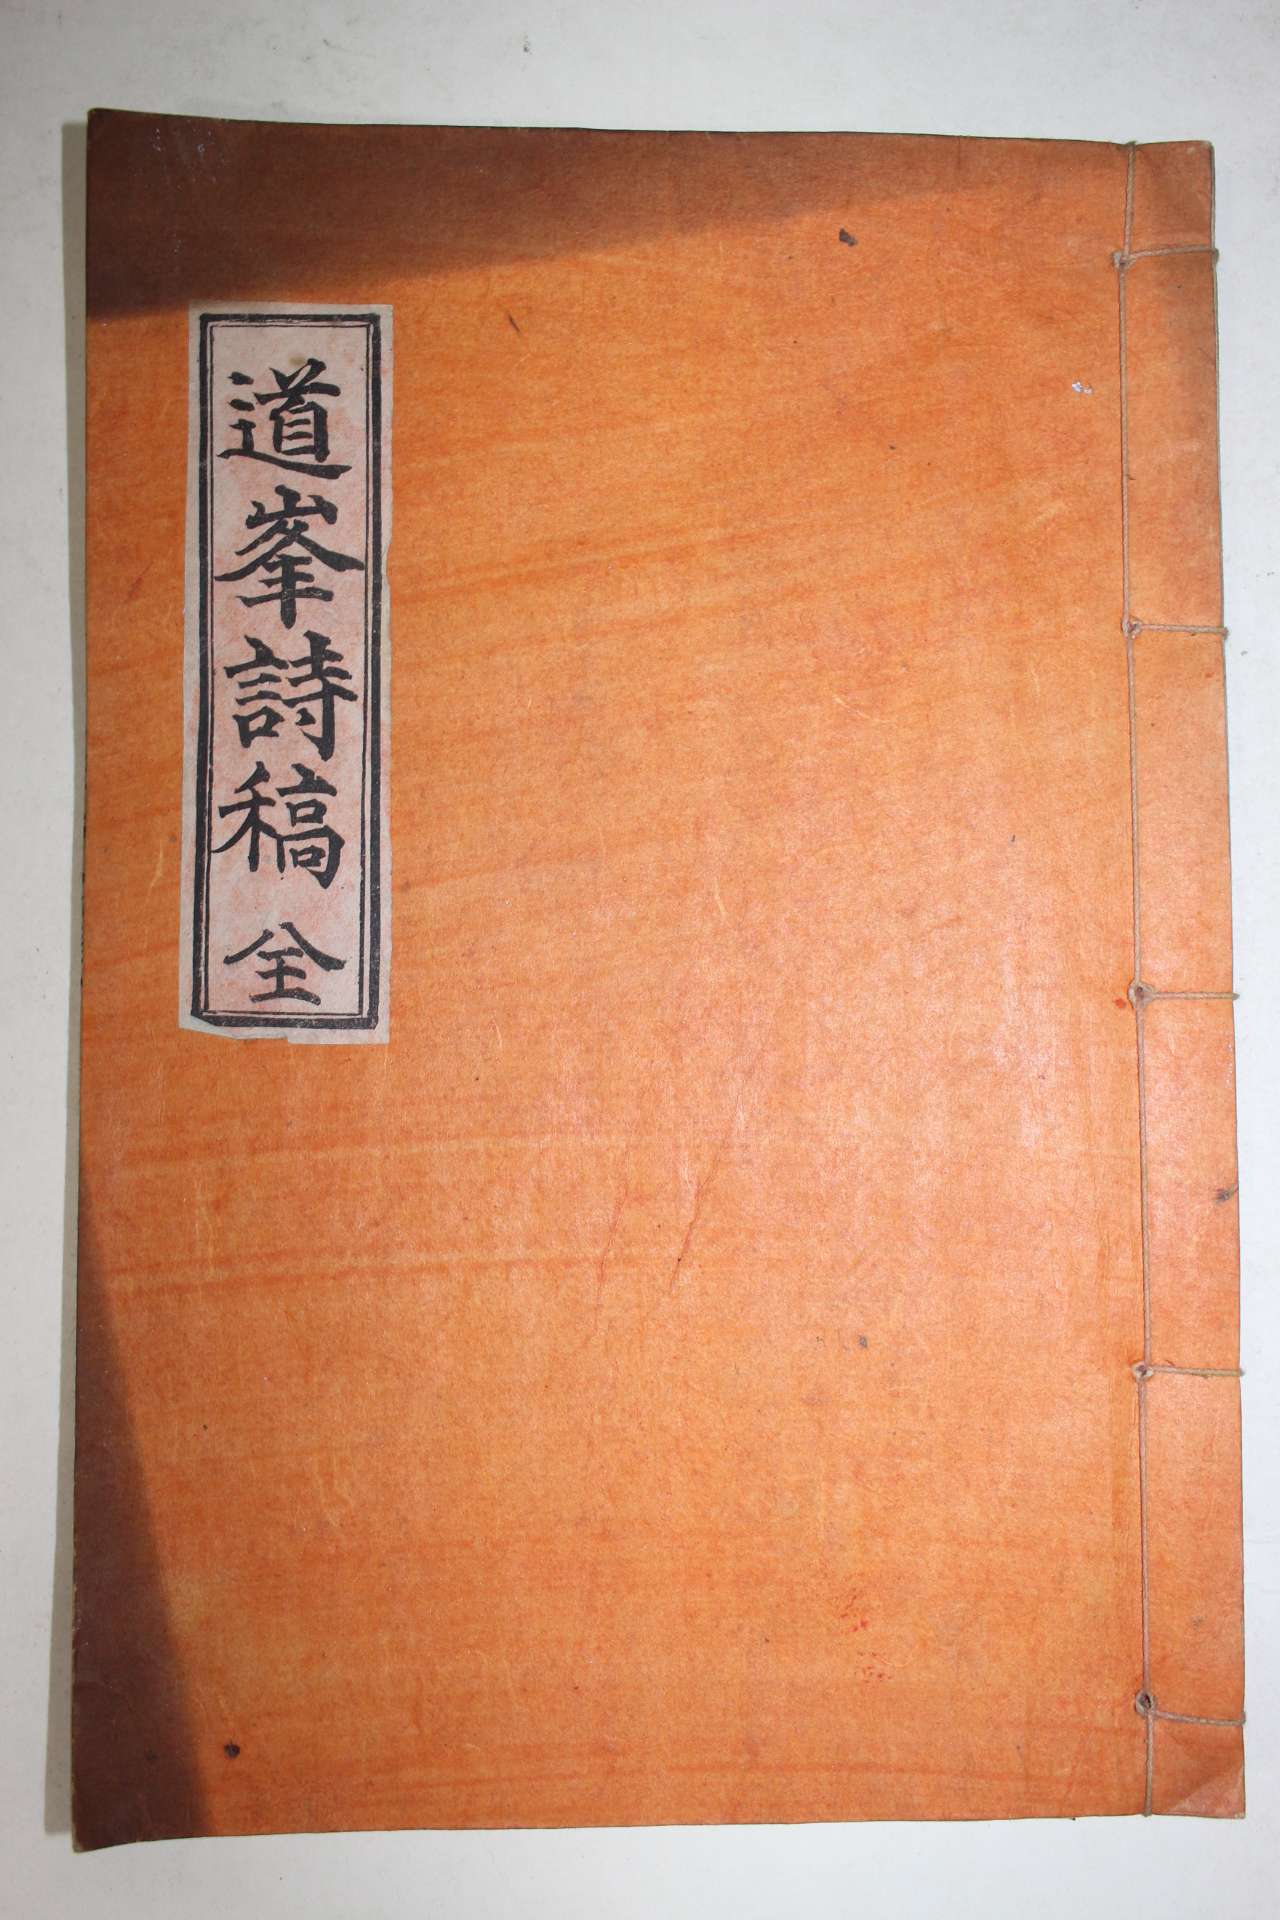 道峯詩稿 全